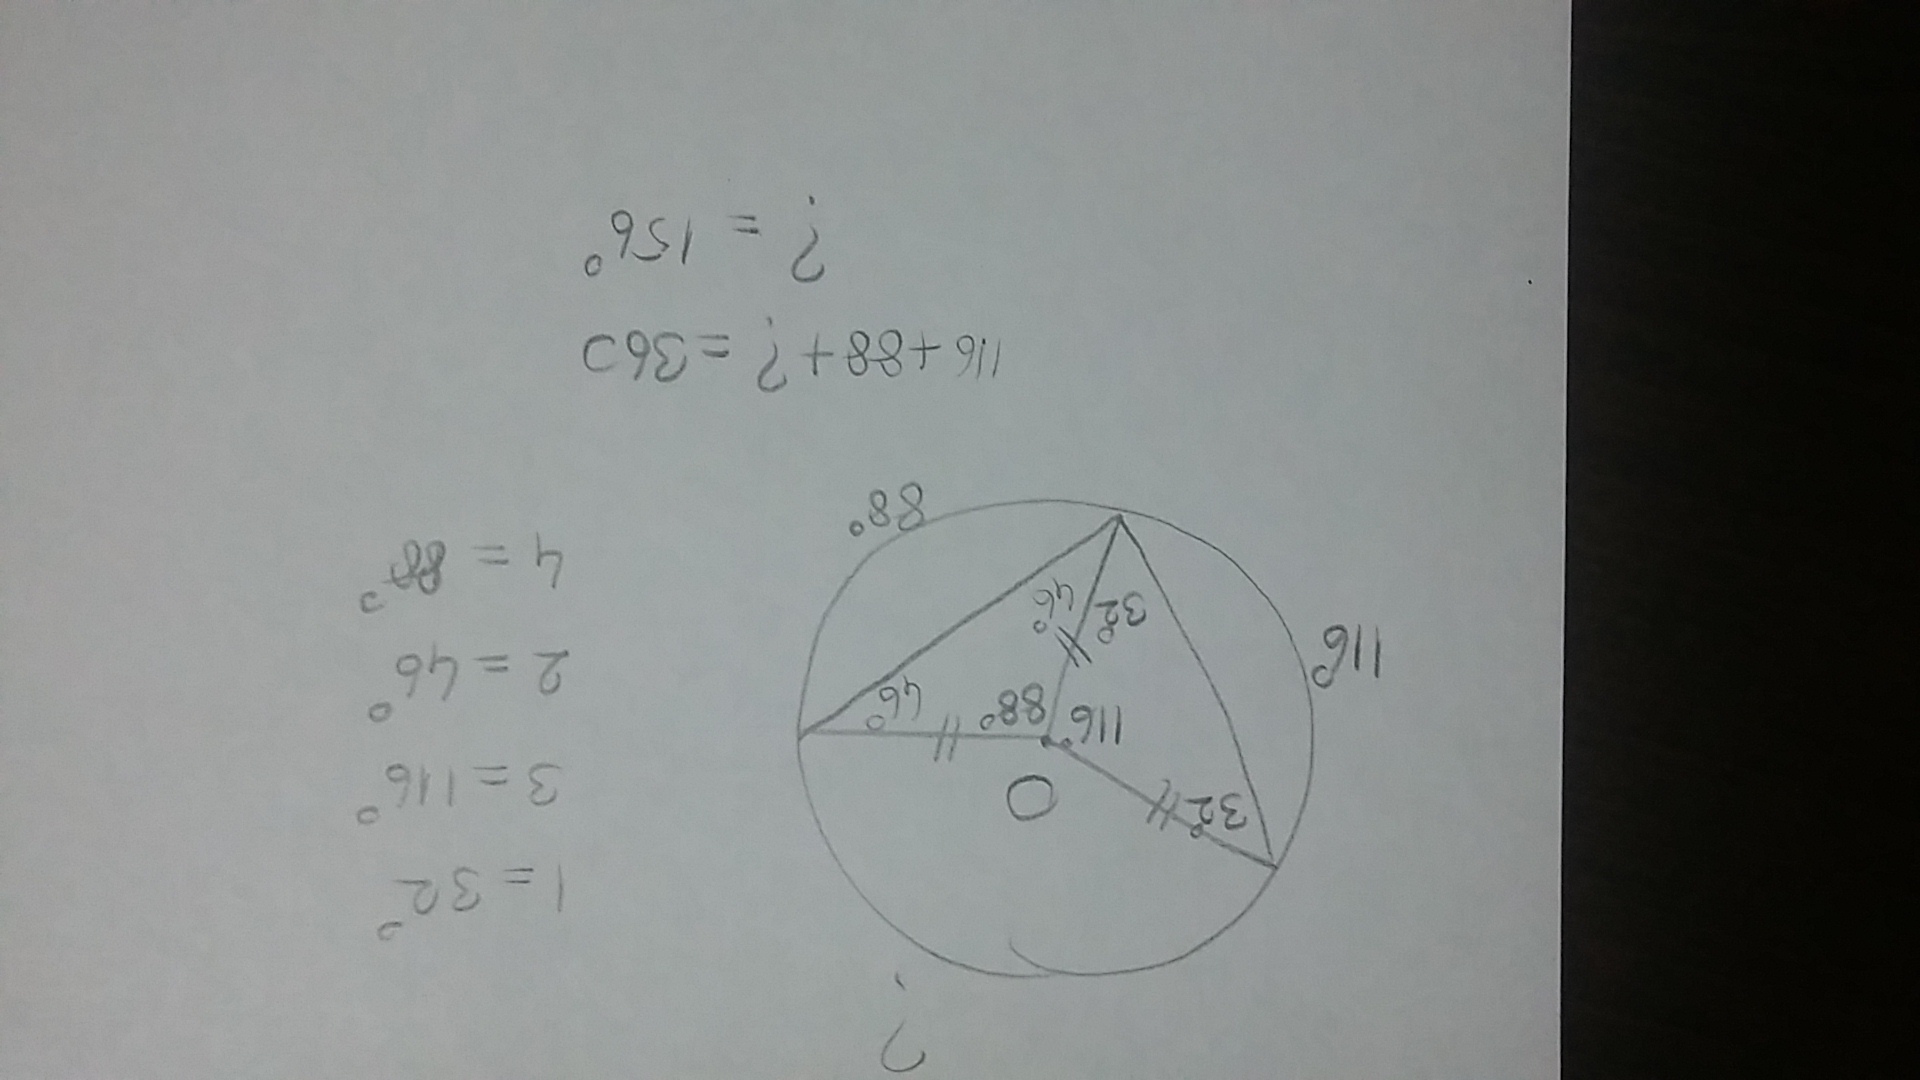 ?
1 = 32°
3 = 116°
2 = 46°
4 = 88°
32°
O
116°
88°
46°
116°
32°
46°
88°
116 + 88 + ? = 360
? = 156°